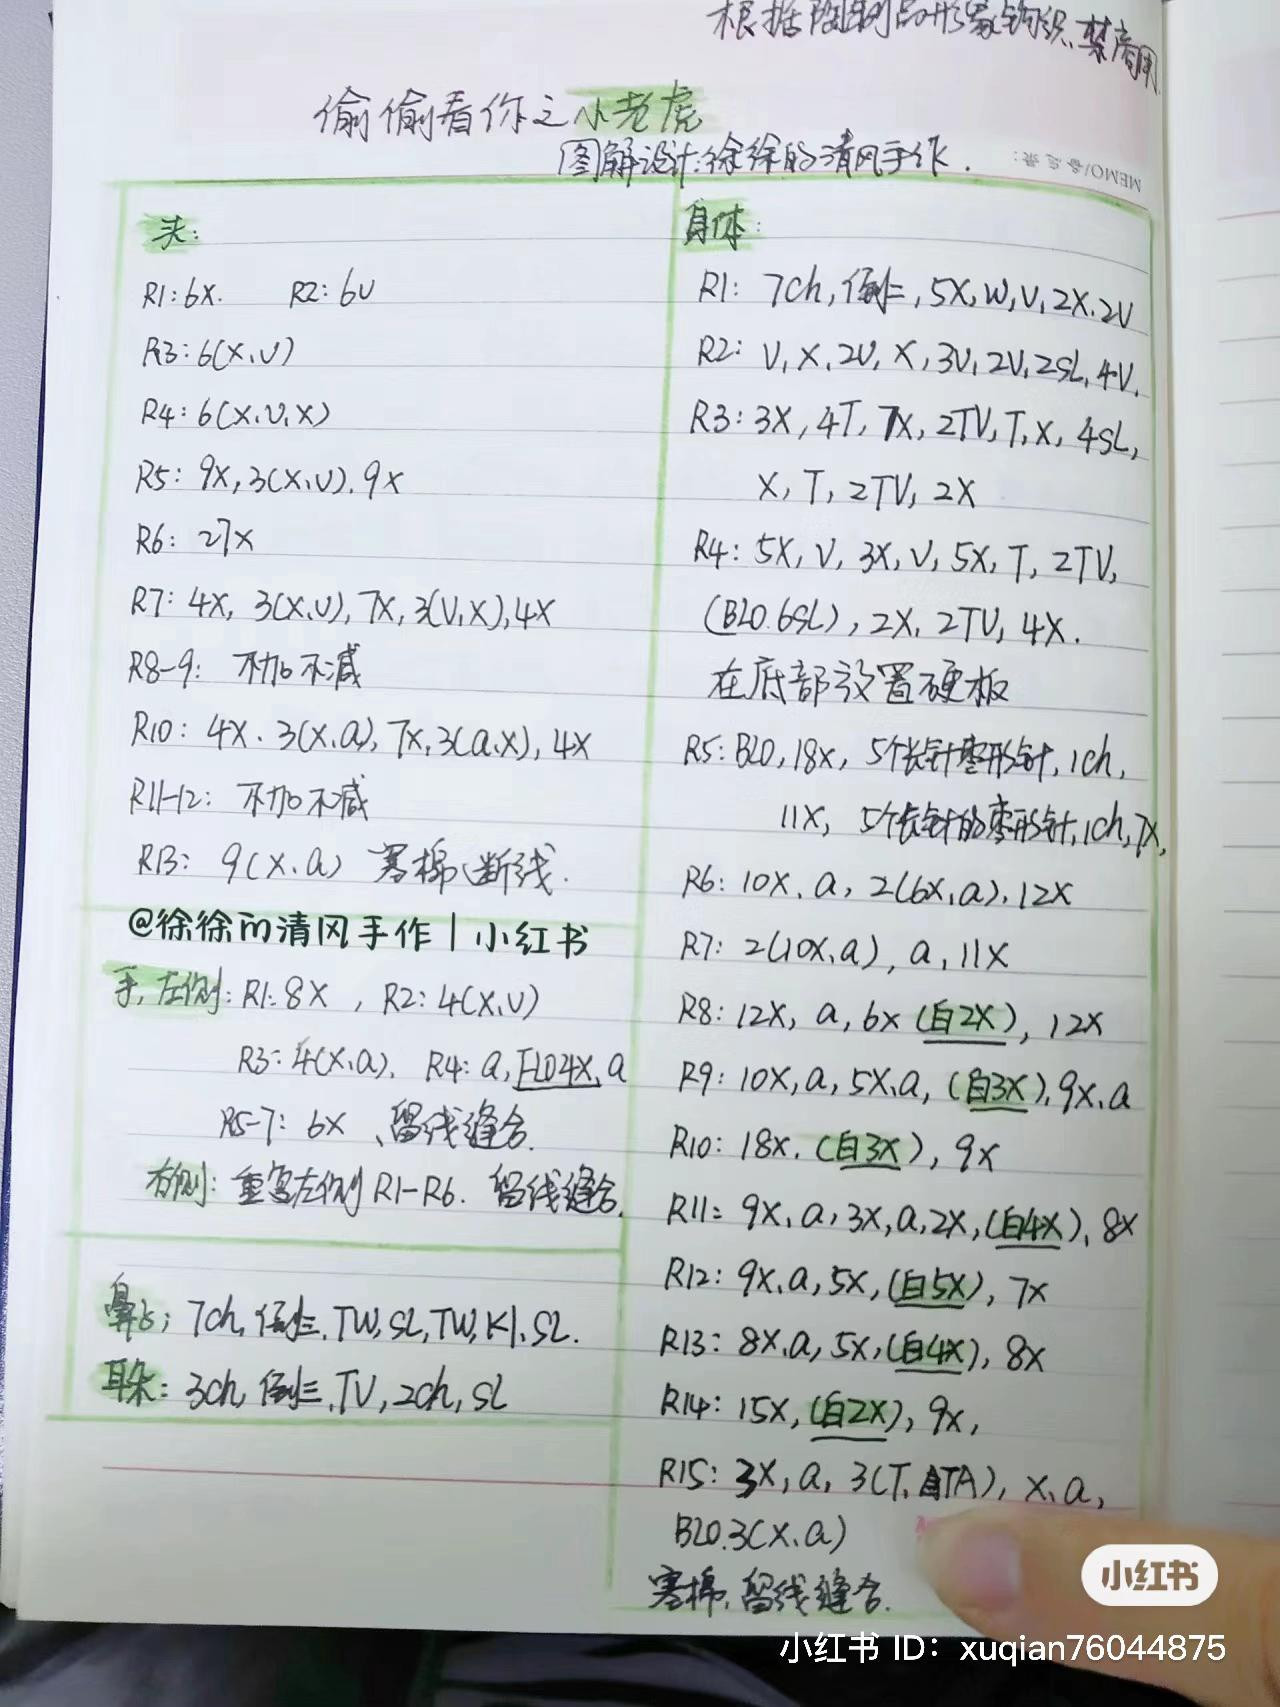 根据陶制品形象钩织,禁商用
偷偷看你之小老虎
图解设计:徐徐的清风手作.
MEMO/备忘录:
头:
R1:6X. R2:6V
R3:6(X,V)
R4:6(X,V,X)
R5:9X,3(X,V),9X
R6:27X
R7:4X,3(X,V),7X,3(V,X),4X
R8-9:不加不减
R10:4X.3(X,A),7X,3(A,X),4X
R11-12:不加不减
R13:9(X,A) 塞棉,断线.
@徐徐的清风手作|小红书
手,左侧:R1:8X,R2:4(X,V)
R3:4(X,A). R4:A,FLO4X,A
R5-7:6X、留线缝合.
右侧:重复左侧R1-R6.留线缝合.
鼻子;7ch,倒三,TW,SL,TW,K1,SL.
耳朵:3ch,倒三,TV,2ch,SL
身体:
R1:7ch,倒二,5X,W,V,2X,2V
R2:V,X,2V,X,3V,2V,2SL,4V,
R3:3X,4T,7X,2TV,T,X,4SL,
X,T,2TV,2X
R4:5X,V,3X,V,5X,T,2TV,
(BLO.6SL),2X,2TV,4X.
在底部放置硬板
R5:BLO,18X,5个长针枣形针,1ch,
11X,5个长针的枣形针,1ch,7X,
R6:10X,A,2(6X,A),12X
R7:2(10X,A),A,11X
R8:12X,A,6X(白2X),12X
R9:10X,A,5X,A,(白3X),9X,A
R10:18X.(白3X),9X
R11:9X,A,3X,A,2X,(白4X),8X
R12:9X,A,5X,(白5X),7X
R13:8X,A,5X,(白4X),8X
R14:15X,(白2X),9X,
R15:3X,A,3(T,TA),X,A,
BLO.3(X,A)
塞棉,留线缝合.
小红书
小红书 ID:xuqian76044875